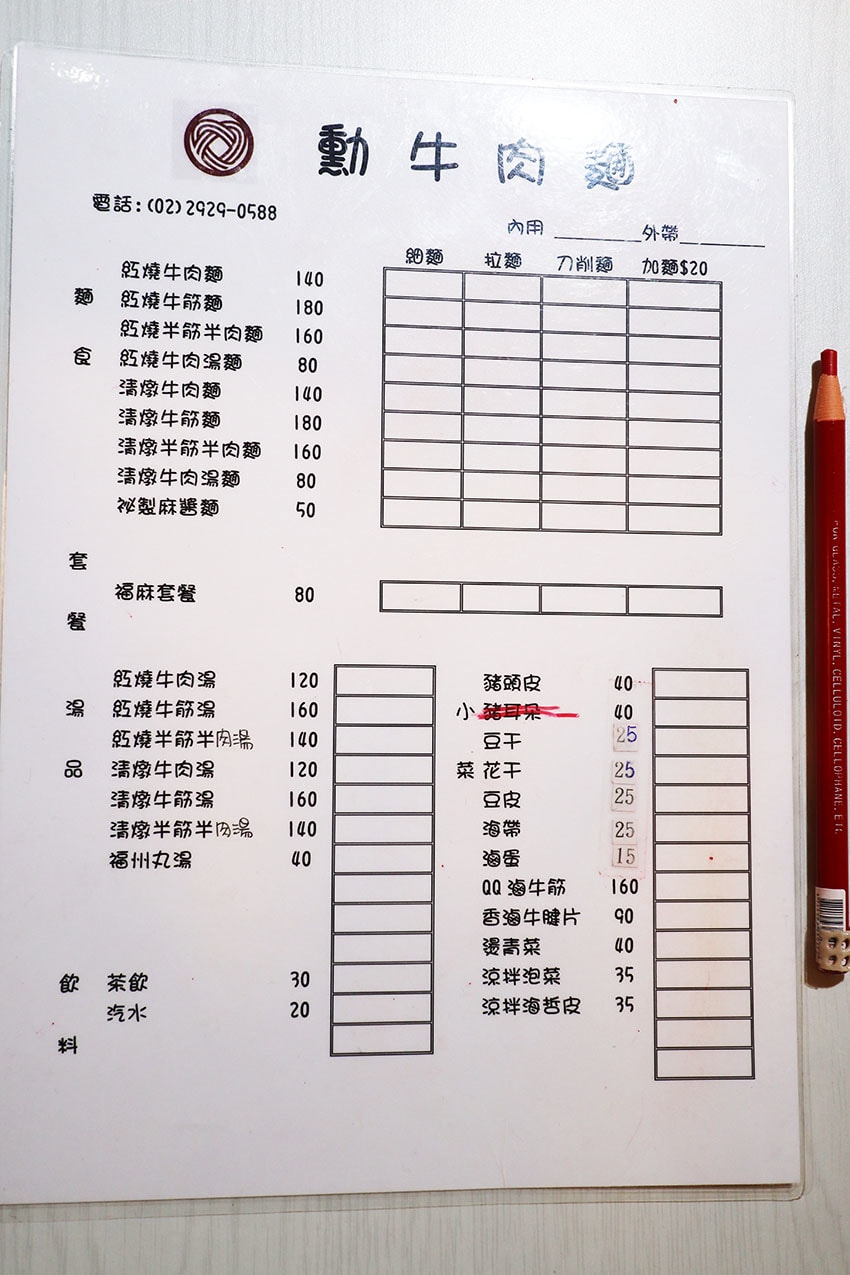 勳牛肉麵
電話:(02)2929-0588
內用 外帶
細麵 拉麵 刀削麵 加麵$20
麵食
紅燒牛肉麵 140
紅燒牛筋麵 180
紅燒半筋半肉麵 160
紅燒牛肉湯麵 80
清燉牛肉麵 140
清燉牛筋麵 180
清燉半筋半肉麵 160
清燉牛肉湯麵 80
祕製麻醬麵 50
套餐
福麻套餐 80
湯品
紅燒牛肉湯 120
紅燒牛筋湯 160
紅燒半筋半肉湯 140
清燉牛肉湯 120
清燉牛筋湯 160
清燉半筋半肉湯 140
福州丸湯 40
飲料
茶飲 30
汽水 20
小菜
豬頭皮 40
豬耳朵 40
豆干 25
花干 25
豆皮 25
海帶 25
滷蛋 15
QQ滷牛筋 160
香滷牛腱片 90
燙青菜 40
涼拌泡菜 35
涼拌海哲皮 35
FOR GLASS, METAL, VINYL, CELLULOID, CELLOPHANE, ETC